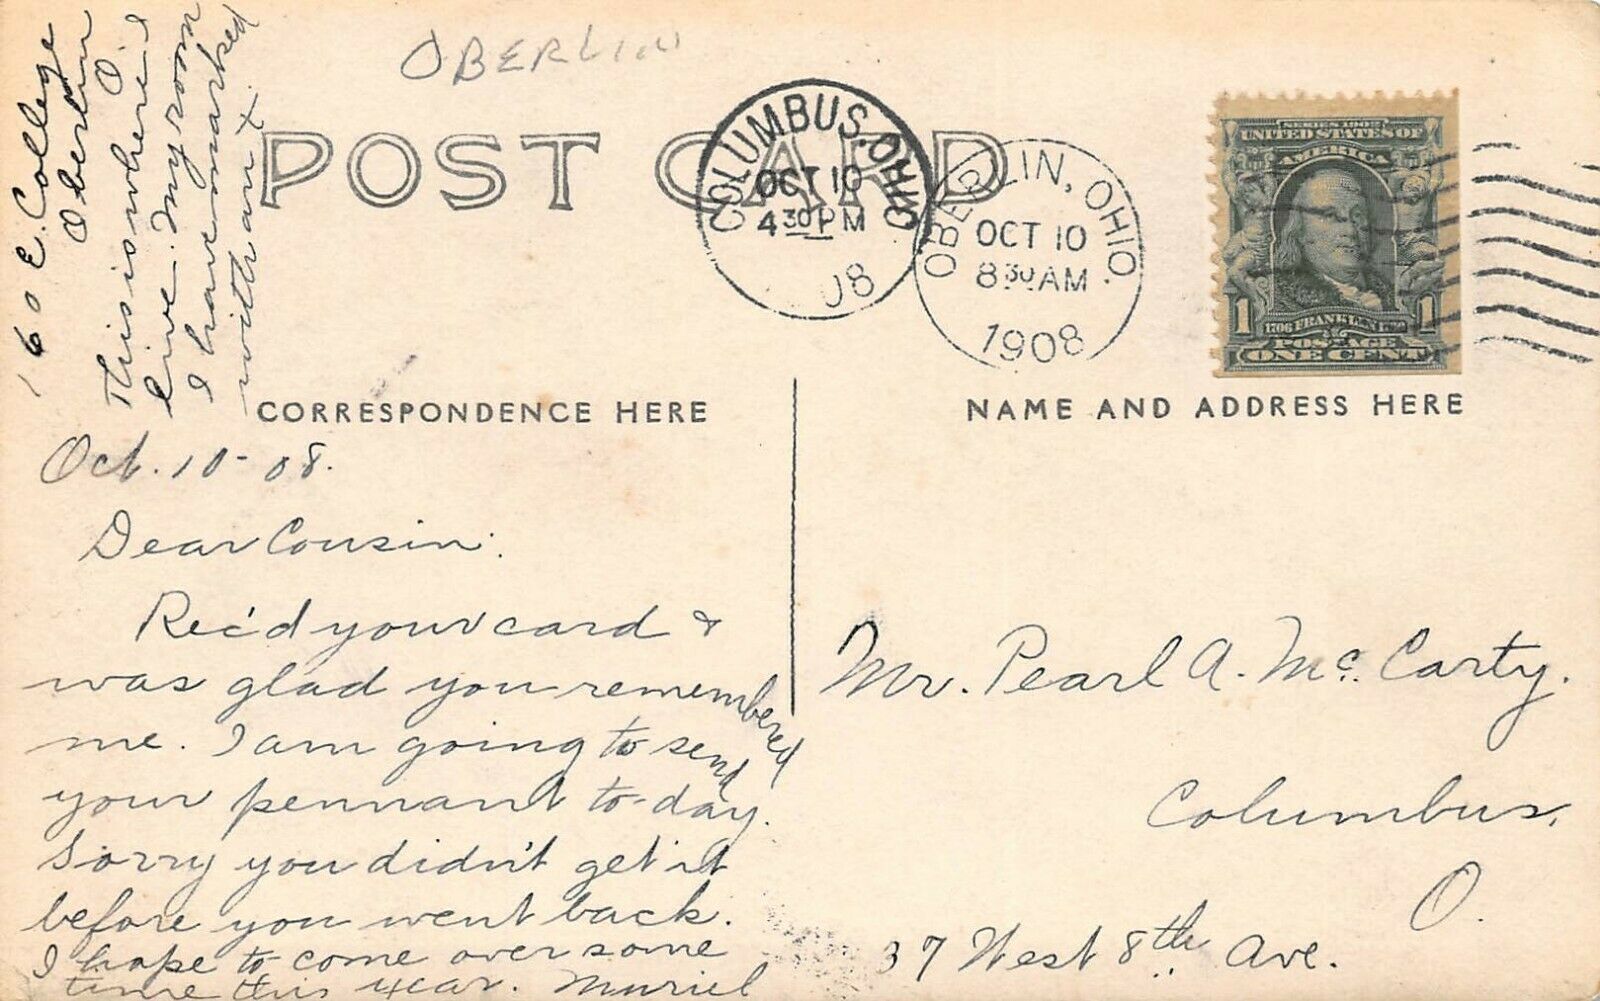 OBERLIN
160 E. College
Oberlin
O.
This is where I
live. My room
I have marked
with an X.
POST CARD
COLUMBUS, OHIO
OCT 10
4 30 PM
08
OBERLIN, OHIO.
OCT 10
8 30 AM
1908
SERIES 1902
UNITED STATES OF
AMERICA
1 1
1706 FRANKLIN 1790
POSTAGE
ONE CENT
CORRESPONDENCE HERE
NAME AND ADDRESS HERE
Oct. 10-08.
Dear Cousin:
Rec'd your card &
was glad you remembered
me. I am going to send
your pennant to-day.
Sorry you didn't get it
before you went back.
I hope to come over some
time this year. Muriel
Mr. Pearl A. Mc. Carty.
Columbus,
O.
37 West 8th Ave.